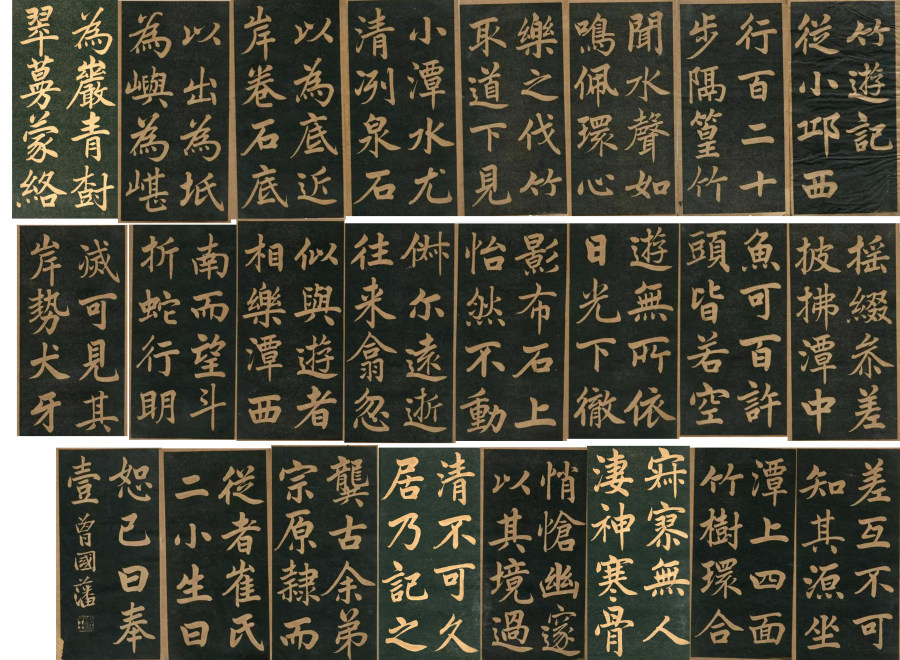 竹遊記
從小邱西
行百二十
步隔篁竹
聞水聲如
鳴佩環心
樂之伐竹
取道下見
小潭水尤
清冽泉石
以為底近
岸卷石底
以出為坻
為嶼為嵁
為巖青樹
翠蔓蒙絡
搖綴叅差
披拂潭中
魚可百許
頭皆若空
遊無所依
日光下徹
影布石上
怡然不動
俶尔遠逝
往来翕忽
似與遊者
相樂潭西
南而望斗
折蛇行明
滅可見其
岸勢犬牙
差互不可
知其源坐
潭上四面
竹樹環合
寂寥無人
淒神寒骨
悄愴幽邃
以其境過
清不可久
居乃記之
龔古余弟
宗原隸而
從者崔氏
二小生曰
恕己曰奉
壹 曾國藩